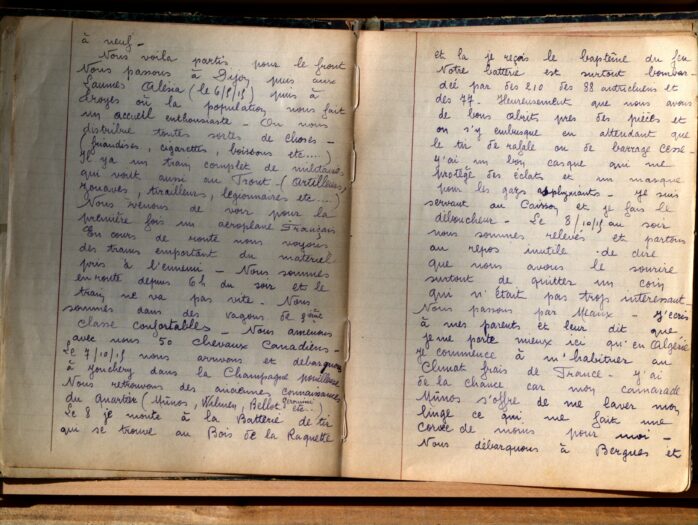 à neuf -
Nous voila partis pour le front
Nous passons à Dijon puis aux
Laumes Alésia (le 6/8/15) puis à
Troyes où la population nous fait
un accueil enthousiaste - On nous
distribue toutes sortes de choses -
(friandises, cigarettes, boissons etc....)
Il y a un train complet de militaires
qui vont aussi au Front - (Artilleurs,
zouaves, tirailleurs, légionnaires etc...)
Nous venons de voir pour la
première fois un aéroplane Français
En cours de route nous voyons
des trains emportant du matériel
pris à l'ennemi - Nous sommes
en route depuis 6h du soir et le
train ne va pas vite - Nous
sommes dans des wagons de 3ème
classe confortables - Nous amenons
avec nous 50 chevaux Canadiens -
Le 7/10/15 nous arrivons et débarquons
à Jonchery dans la Champagne pouilleuse
Nous retrouvons des anciennes connaissances
du Quartier (Minos, Wilmes, Bellot, Geronimi etc...)
Le 8 je monte à la Batterie de tir
qui se trouve au Bois de la Raquette
et la je reçois le baptême du feu
Notre batterie est surtout bombar
dée par des 210 des 88 autrichiens et
des 77 - Heureusement que nous avons
de bons abris près des pièces et
on s'y embusque en attendant que
le tir de rafale ou de barrage cesse
J'ai un bon casque qui me
protège des éclats et un masque
pour les gaz asphyxiants - je suis
servant au Caisson et je fais le
déboucheur - Le 8/10/15 au soir
nous sommes relevés et partons
au repos inutile de dire
que nous avons le sourire
surtout de quitter un coin
qui n'était pas trop intéressant
Nous passons par Meaux - j'écris
à mes parents et leur dit que
je me porte mieux ici qu'en Algérie
je commence à m'habituer au
Climat frais de France - j'ai
de la chance car mon camarade
Minos s'offre de me laver mon
linge ce qui me fait une
corvée de moins pour moi -
Nous débarquons à Bergues et